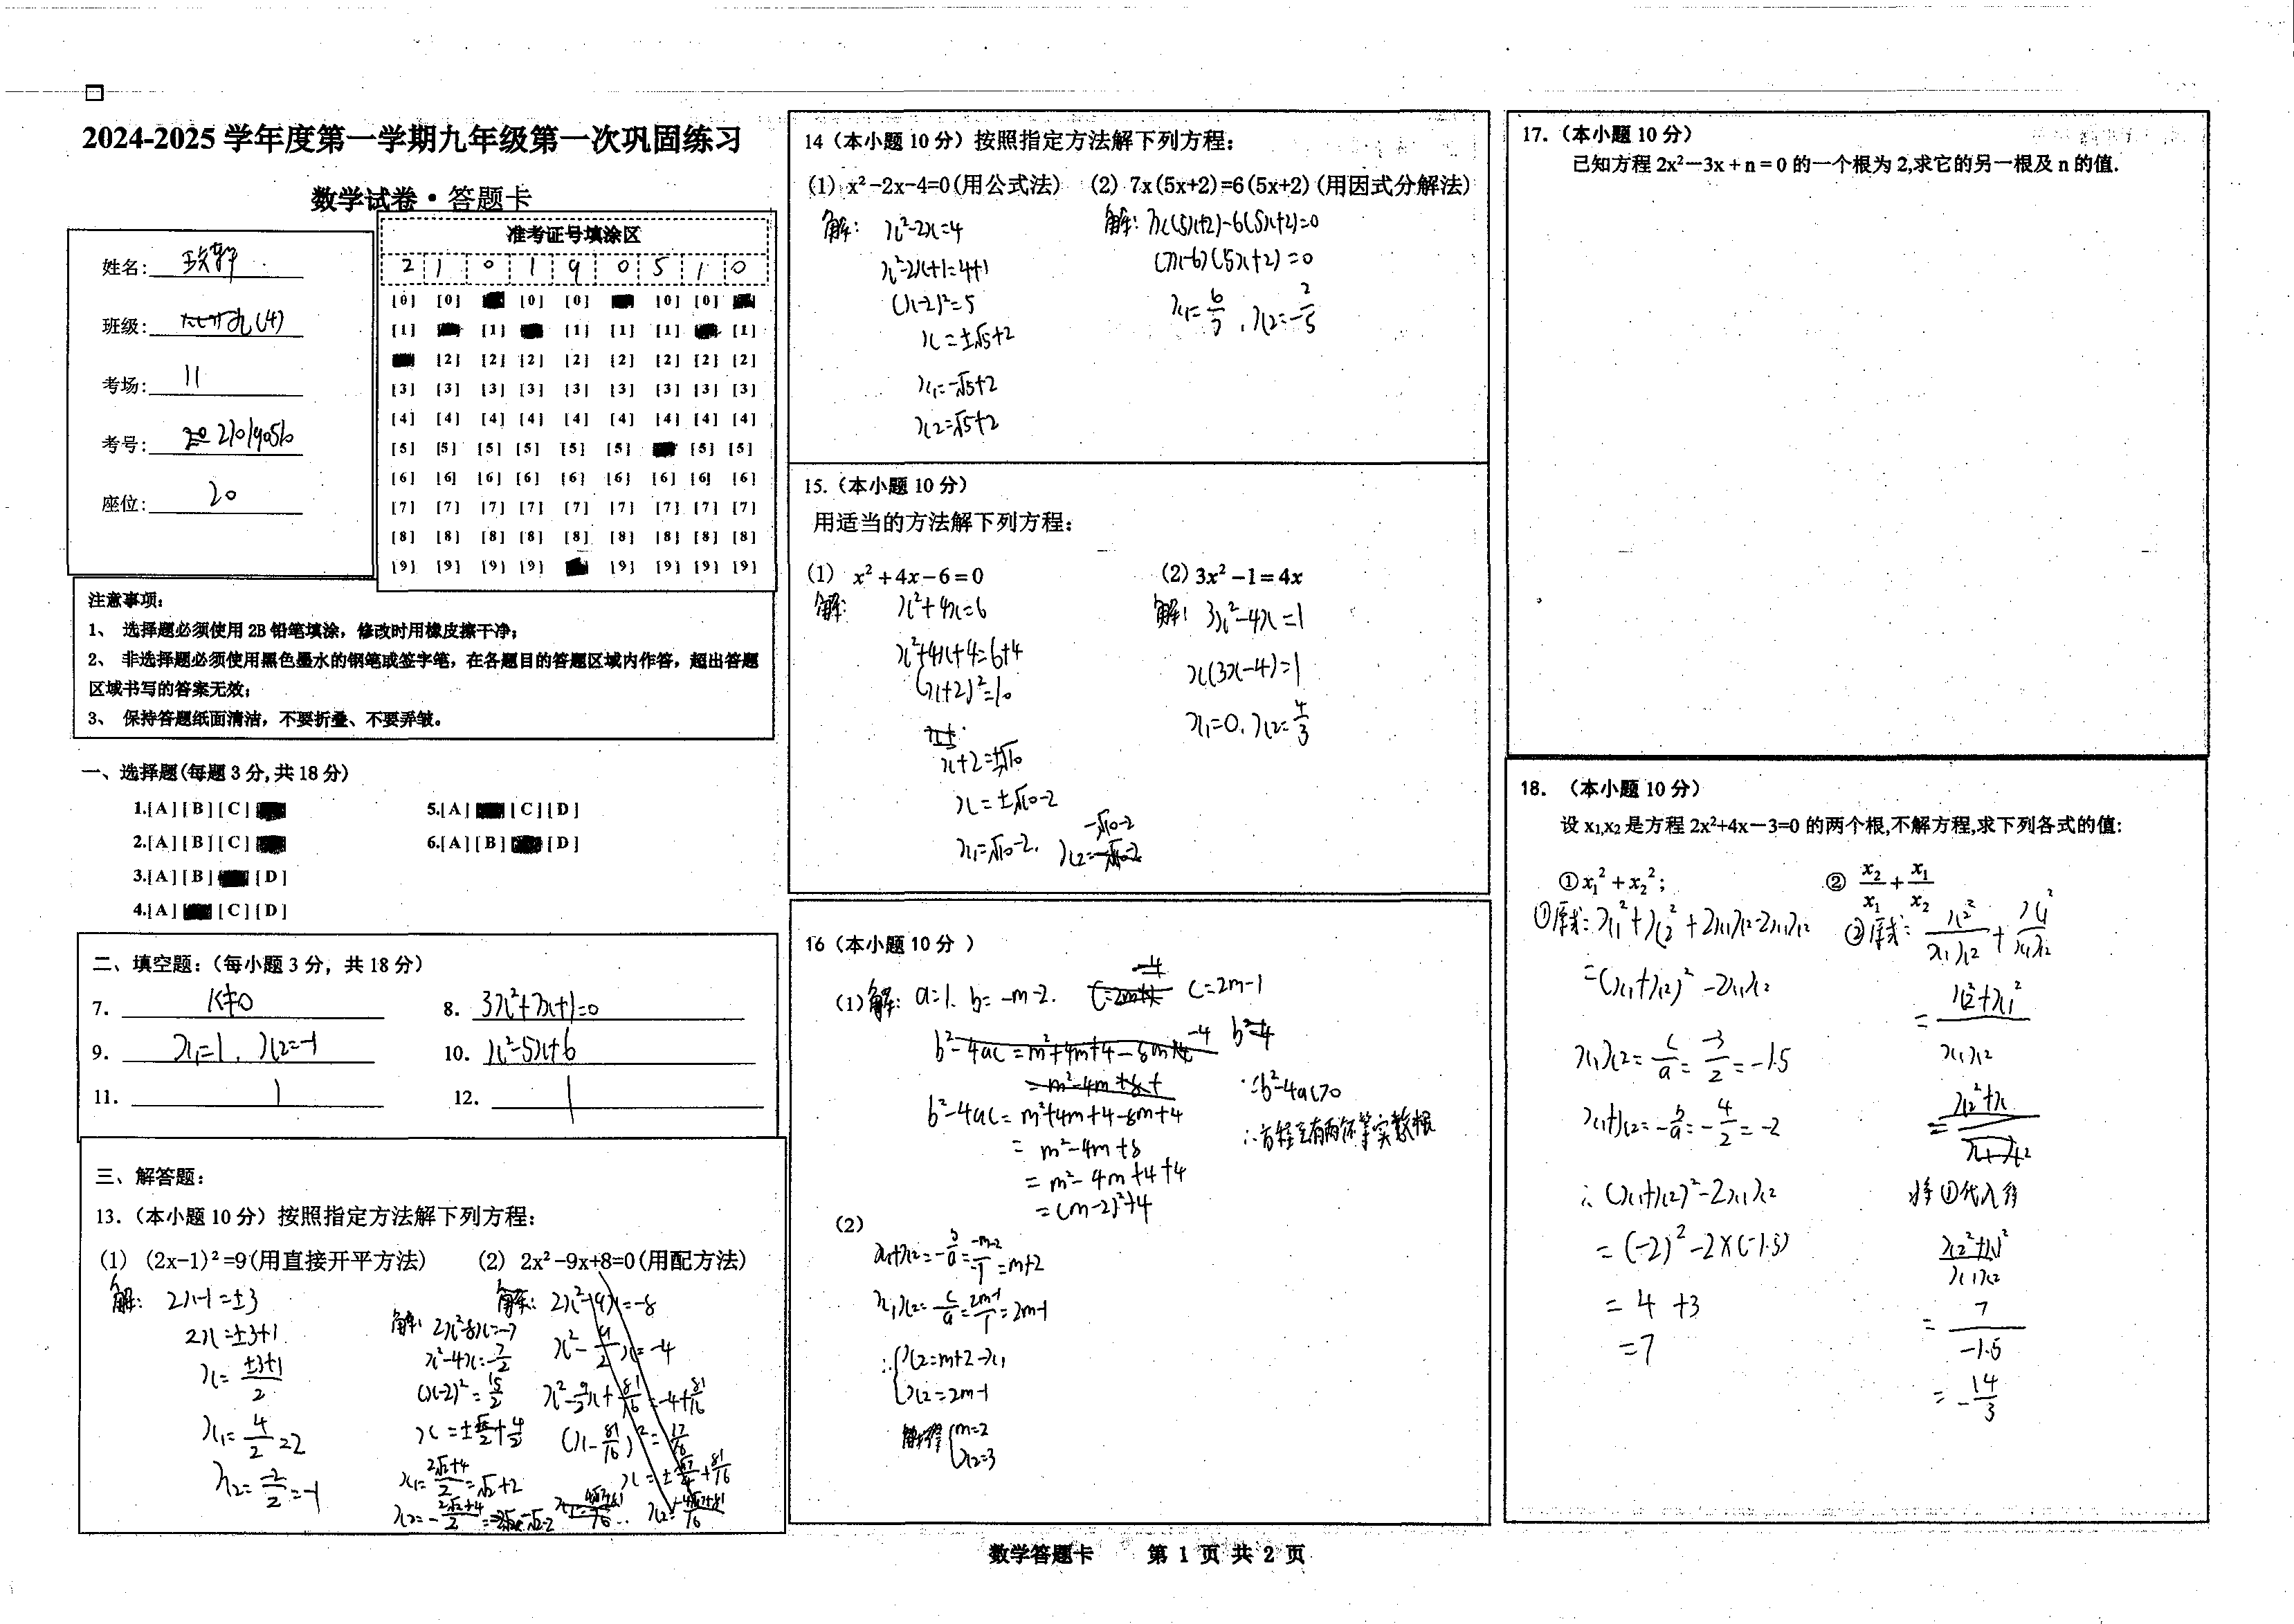 2024-2025 学年度第一学期九年级第一次巩固练习
数学试卷·答题卡
姓名:
班级: 九(4)
考场: 11
考号: 210190510
座位: 20
准考证号填涂区
2 1 0 1 9 0 5 1 0
[0] [0] [0] [0] [0] [0]
[1] [1] [1] [1] [1] [1]
[2] [2] [2] [2] [2] [2] [2] [2]
[3] [3] [3] [3] [3] [3] [3] [3] [3]
[4] [4] [4] [4] [4] [4] [4] [4] [4]
[5] [5] [5] [5] [5] [5] [5] [5]
[6] [6] [6] [6] [6] [6] [6] [6] [6]
[7] [7] [7] [7] [7] [7] [7] [7] [7]
[8] [8] [8] [8] [8] [8] [8] [8] [8]
[9] [9] [9] [9] [9] [9] [9] [9]
注意事项:
1、 选择题必须使用 2B 铅笔填涂，修改时用橡皮擦干净;
2、 非选择题必须使用黑色墨水的钢笔或签字笔，在各题目的答题区域内作答，超出答题
区域书写的答案无效;
3、 保持答题纸面清洁，不要折叠、不要弄皱。
一、选择题(每题 3 分,共 18 分)
1.[A][B][C] 5.[A] [C][D]
2.[A][B][C] 6.[A][B] [D]
3.[A][B] [D]
4.[A] [C][D]
二、填空题:（每小题 3 分，共 18 分）
7. k≠0 8. 3x²+7x+1=0
9. x₁=1, x₂=-1 10. x²-5x+6
11. 1 12. 1
三、解答题:
13.（本小题 10 分）按照指定方法解下列方程:
(1) (2x-1)²=9(用直接开平方法) (2) 2x²-9x+8=0(用配方法)
解: 2x-1=±3
2x=±3+1
x=(±3+1)/2
x₁=4/2=2
x₂=-2/2=-1
解: 2x²-8x=-7
x²-4x=-7/2
(x-2)²=15/2
x₁=(2√2+4)/2=√2+2
解: 2x²-9x=-8
x²-9/2x=-4
x²-9/2x+81/16=-4+81/16
(x-81/16)²=17/16
14（本小题 10 分）按照指定方法解下列方程:
(1) x²-2x-4=0(用公式法) (2) 7x(5x+2)=6(5x+2)(用因式分解法)
解: x²-2x=4
x²-2x+1=4+1
(x-2)²=5
x=±√5+2
x₁=-√5+2
x₂=√5+2
解: 7x(5x+2)-6(5x+2)=0
(7x-6)(5x+2)=0
x₁=6/7, x₂=-2/5
15.（本小题 10 分）
用适当的方法解下列方程:
(1) x²+4x-6=0 (2) 3x²-1=4x
解: x²+4x=6
x²+4x+4=6+4
(x+2)²=10
x+2=±√10
x=±√10-2
x₁=√10-2, x₂=-√10-2
解: 3x²-4x=1
x(3x-4)=1
x₁=0, x₂=4/3
16（本小题 10 分 ）
(1) 解: a=1. b=-m-2. c=2m-1
b²-4ac=m²+4m+4-8m+4
=m²-4m+8
=m²-4m+4+4
=(m-2)²+4
∵b²-4ac>0
∴方程总有两不等实数根
(2)
x₁+x₂=-b/a=-(-m-2)/1=m+2
x₁x₂=c/a=(2m-1)/1=2m-1
∴{x₂=m+2-x₁
x₂=2m-1
解得{m=2
x₂=3
17.（本小题 10 分）
已知方程 2x²－3x + n = 0 的一个根为 2,求它的另一根及 n 的值.
18. （本小题 10 分）
设 x₁,x₂ 是方程 2x²+4x－3=0 的两个根,不解方程,求下列各式的值:
①x₁²+x₂²; ② x₂/x₁+x₁/x₂
①原式: x₁²+x₂²+2x₁x₂-2x₁x₂
=(x₁+x₂)²-2x₁x₂
x₁x₂=c/a=-3/2=-1.5
x₁+x₂=-b/a=-4/2=-2
∴(x₁+x₂)²-2x₁x₂
=(-2)²-2×(-1.5)
=4+3
=7
②原式: x₂²/x₁x₂+x₁²/x₁x₂
=(x₂²+x₁²)/x₁x₂
将①代入得
(x₂²+x₁²)/x₁x₂
=7/-1.5
=-14/3
数学答题卡 第 1 页 共 2 页